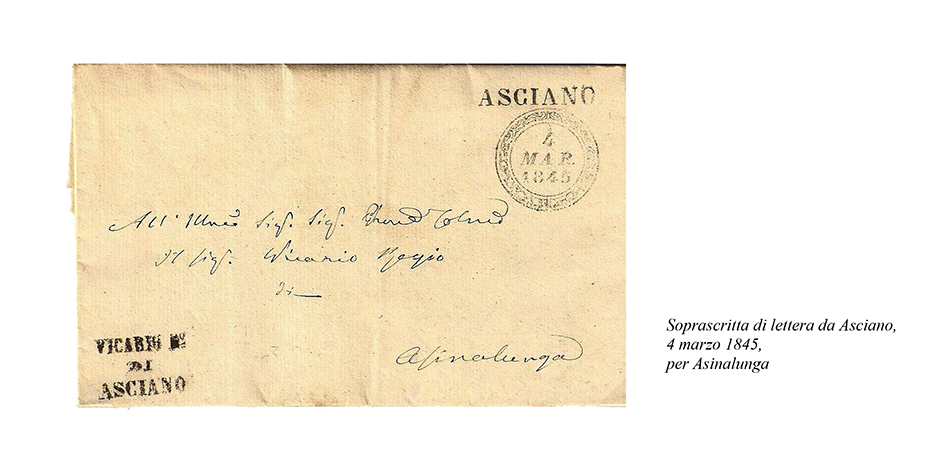 ASCIANO
4
MAR.
1845
All' Sig. Sig.
Il Sig. Vicario Regio
di
Asinalunga
VICARIO Rº
DI
ASCIANO
Soprascritta di lettera da Asciano,
4 marzo 1845,
per Asinalunga